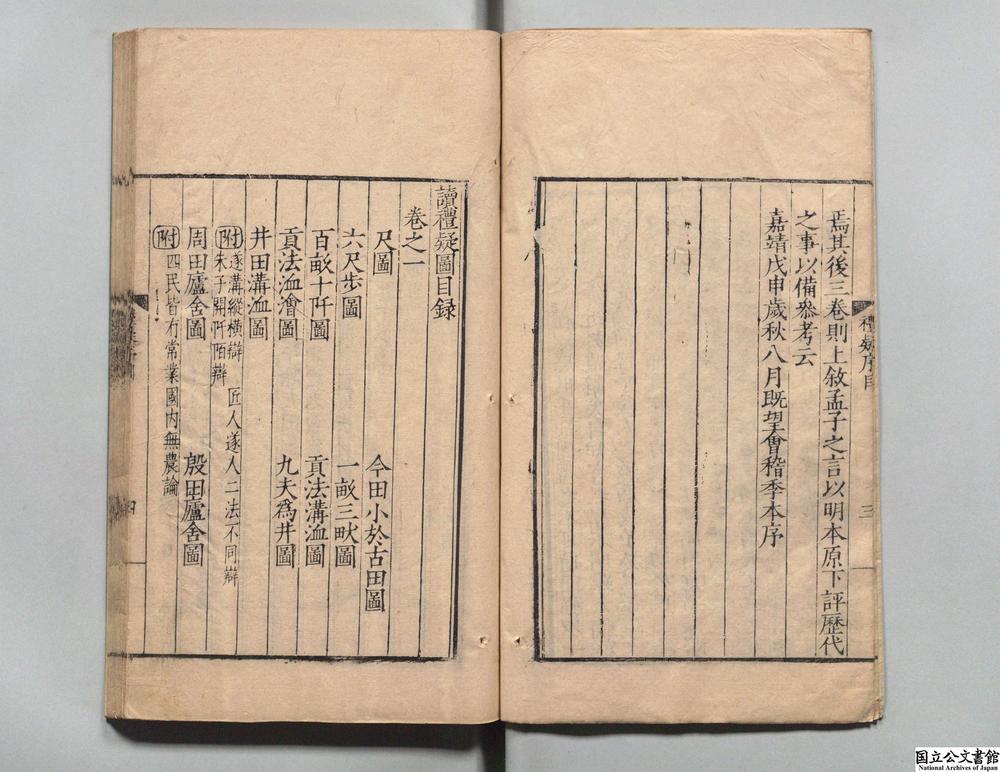 焉其後三卷則上敘孟子之言以明本原下評歷代
之事以備叅考云
嘉靖戊申歲秋八月既望會稽季本序
禮疑序目
三
讀禮疑圖目録
卷之一
尺圖
今田小於古田圖
六尺步圖
一畝三畎圖
百畝十阡圖
貢法溝洫圖
貢法洫澮圖
九夫爲井圖
井田溝洫圖
附
遂溝縱橫辯
匠人遂人二法不同辯
朱子開阡陌辯
周田廬舍圖
殷田廬舍圖
附
四民皆有常業國内無農論
四
国立公文書館
National Archives of Japan